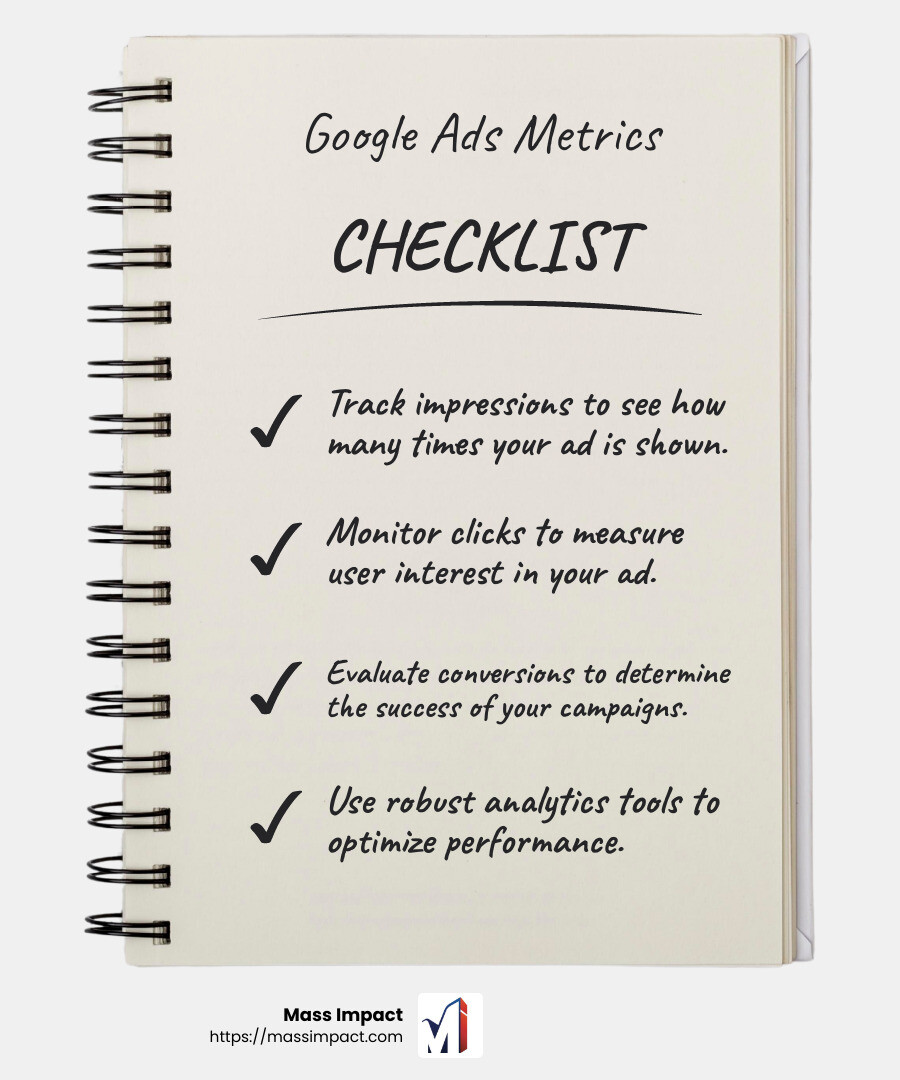 Google Ads Metrics
CHECKLIST
Track impressions to see how
many times your ad is shown.
Monitor clicks to measure
user interest in your ad.
Evaluate conversions to determine
the success of your campaigns.
Use robust analytics tools to
optimize performance.
Mass Impact
https://massimpact.com